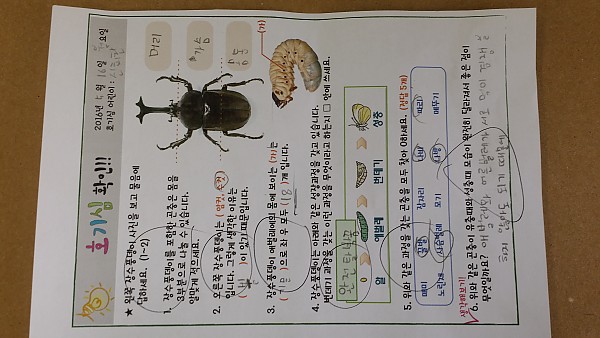 호기심 확인!!!
2016년 5월 18일 요일
호기심 어린이 :
★ 왼쪽 장수풍뎅이 사진을 보고 물음에
답하세요. (1~2)
머리
가슴
배
1. 장수풍뎅이를 포함한 곤충은 몸을
3부분으로 나눌 수 있습니다.
알맞게 적으세요.
2. 오른쪽 장수풍뎅이는 (암컷, 수컷)
입니다. 그렇게 생각한 이유는
( 뿔 )이 있기 때문입니다.
(가)
3. 장수풍뎅이 애벌레의 몸에 보이는 (가)는
( 기문 )으로 좌 우 모두 ( 18 )개 입니다.
4. 장수풍뎅이는 아래와 같은 성장과정을 갖고 있습니다.
번데기 과정을 갖는 이런 과정을 무엇이라고 하는지 □ 안에 쓰세요.
완전탈바꿈
알 애벌레 번데기 성충
5. 위와 같은 과정을 갖는 곤충을 모두 찾아 O하세요. (정답 5개)
매미 꿀벌 잠자리 나비 파리
노린재 사슴벌레 모기 나방 메뚜기
생각해보기!
6. 위와 같은 곤충이 유충때와 성충때 모습이 완전히 달라져서 좋은 점이
무엇일까요? 애벌레와 어른벌레가 서로 먹이 경쟁을
하지 않아도 되기 때문에